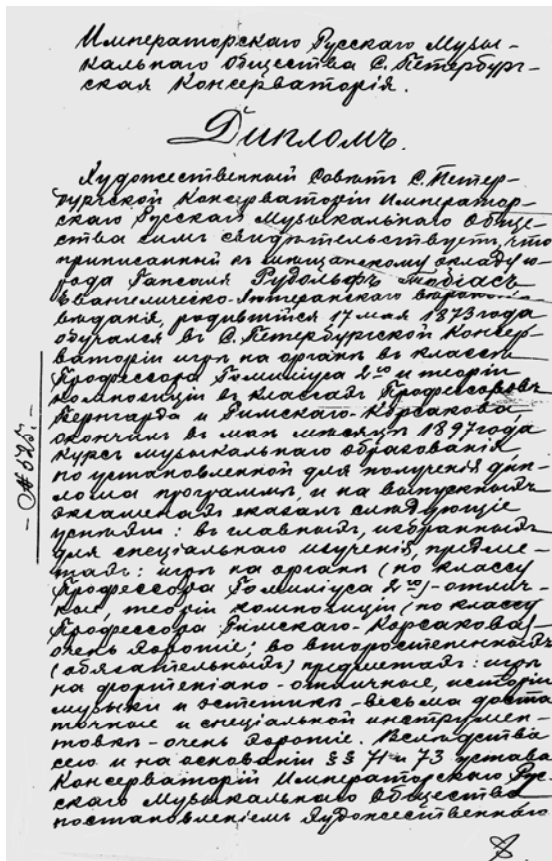 Императорскаго Русскаго Музы-
кальнаго Общества С. Петербург-
ская Консерваторія.
Дипломъ.
Художественный Совѣтъ С. Петер-
бургской Консерваторіи Император-
скаго Русскаго Музыкальнаго Обще-
ства симъ свидѣтельствуетъ, что
приписанный къ мѣщанскому окладу го-
рода Гапсаля Рудольфъ Тобіасъ
Евангелическо-Лютеранскаго вѣроиспо-
вѣданія, родившійся 17 мая 1873 года
обучался въ С. Петербургской Консер-
ваторіи игрѣ на органѣ въ классѣ
Профессора Гомиліуса 2го и теоріи
композиціи въ классахъ Профессоровъ
Бернгарда и Римскаго-Корсакова,
окончилъ въ маѣ мѣсяцѣ 1897 года
курсъ музыкальнаго образованія
по установленной для полученія дип-
лома программѣ, и на выпускныхъ
экзаменахъ оказалъ слѣдующіе
успѣхи: въ главныхъ, избранныхъ
для спеціальнаго изученія, предме-
тахъ: игрѣ на органѣ (по классу
Профессора Гомиліуса 2го) - отлич-
ные, теоріи композиціи (по классу
Профессора Римскаго-Корсакова) -
очень хорошіе; во второстепенныхъ
(обязательныхъ) предметахъ: игрѣ
на фортепіано - отличные, исторіи
музыки и эстетикѣ - весьма доста
точные и спеціальной инструмен-
товкѣ - очень хорошіе. Вслѣдствіе
сего и на основаніи §§ 71 и 73 устава
Консерваторій Императорскаго Рус-
скаго Музыкальнаго Общества
постановленіемъ Художественнаго
- № 525. -